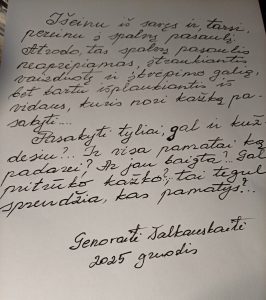 Išeinu iš savęs ir, tarsi,
pereinu į spalvų pasaulį.
Atrodo, tas spalvų pasaulis
neaprėpiamas, įtraukiantis
vaizduotę ir įkvėpimo galią,
bet kartu išplaukiantis iš
vidaus, kuris nori kažką pa-
sakyti....
Pasakyti tyliai, gal ir kuž
desiu?... Ir visa pamatai ką
padarei? Ar jau baigta?.. Gal
pritrūko kažko?, tai tegul
sprendžia, kas pamatys?...
Genovaitė
2025 gruodis